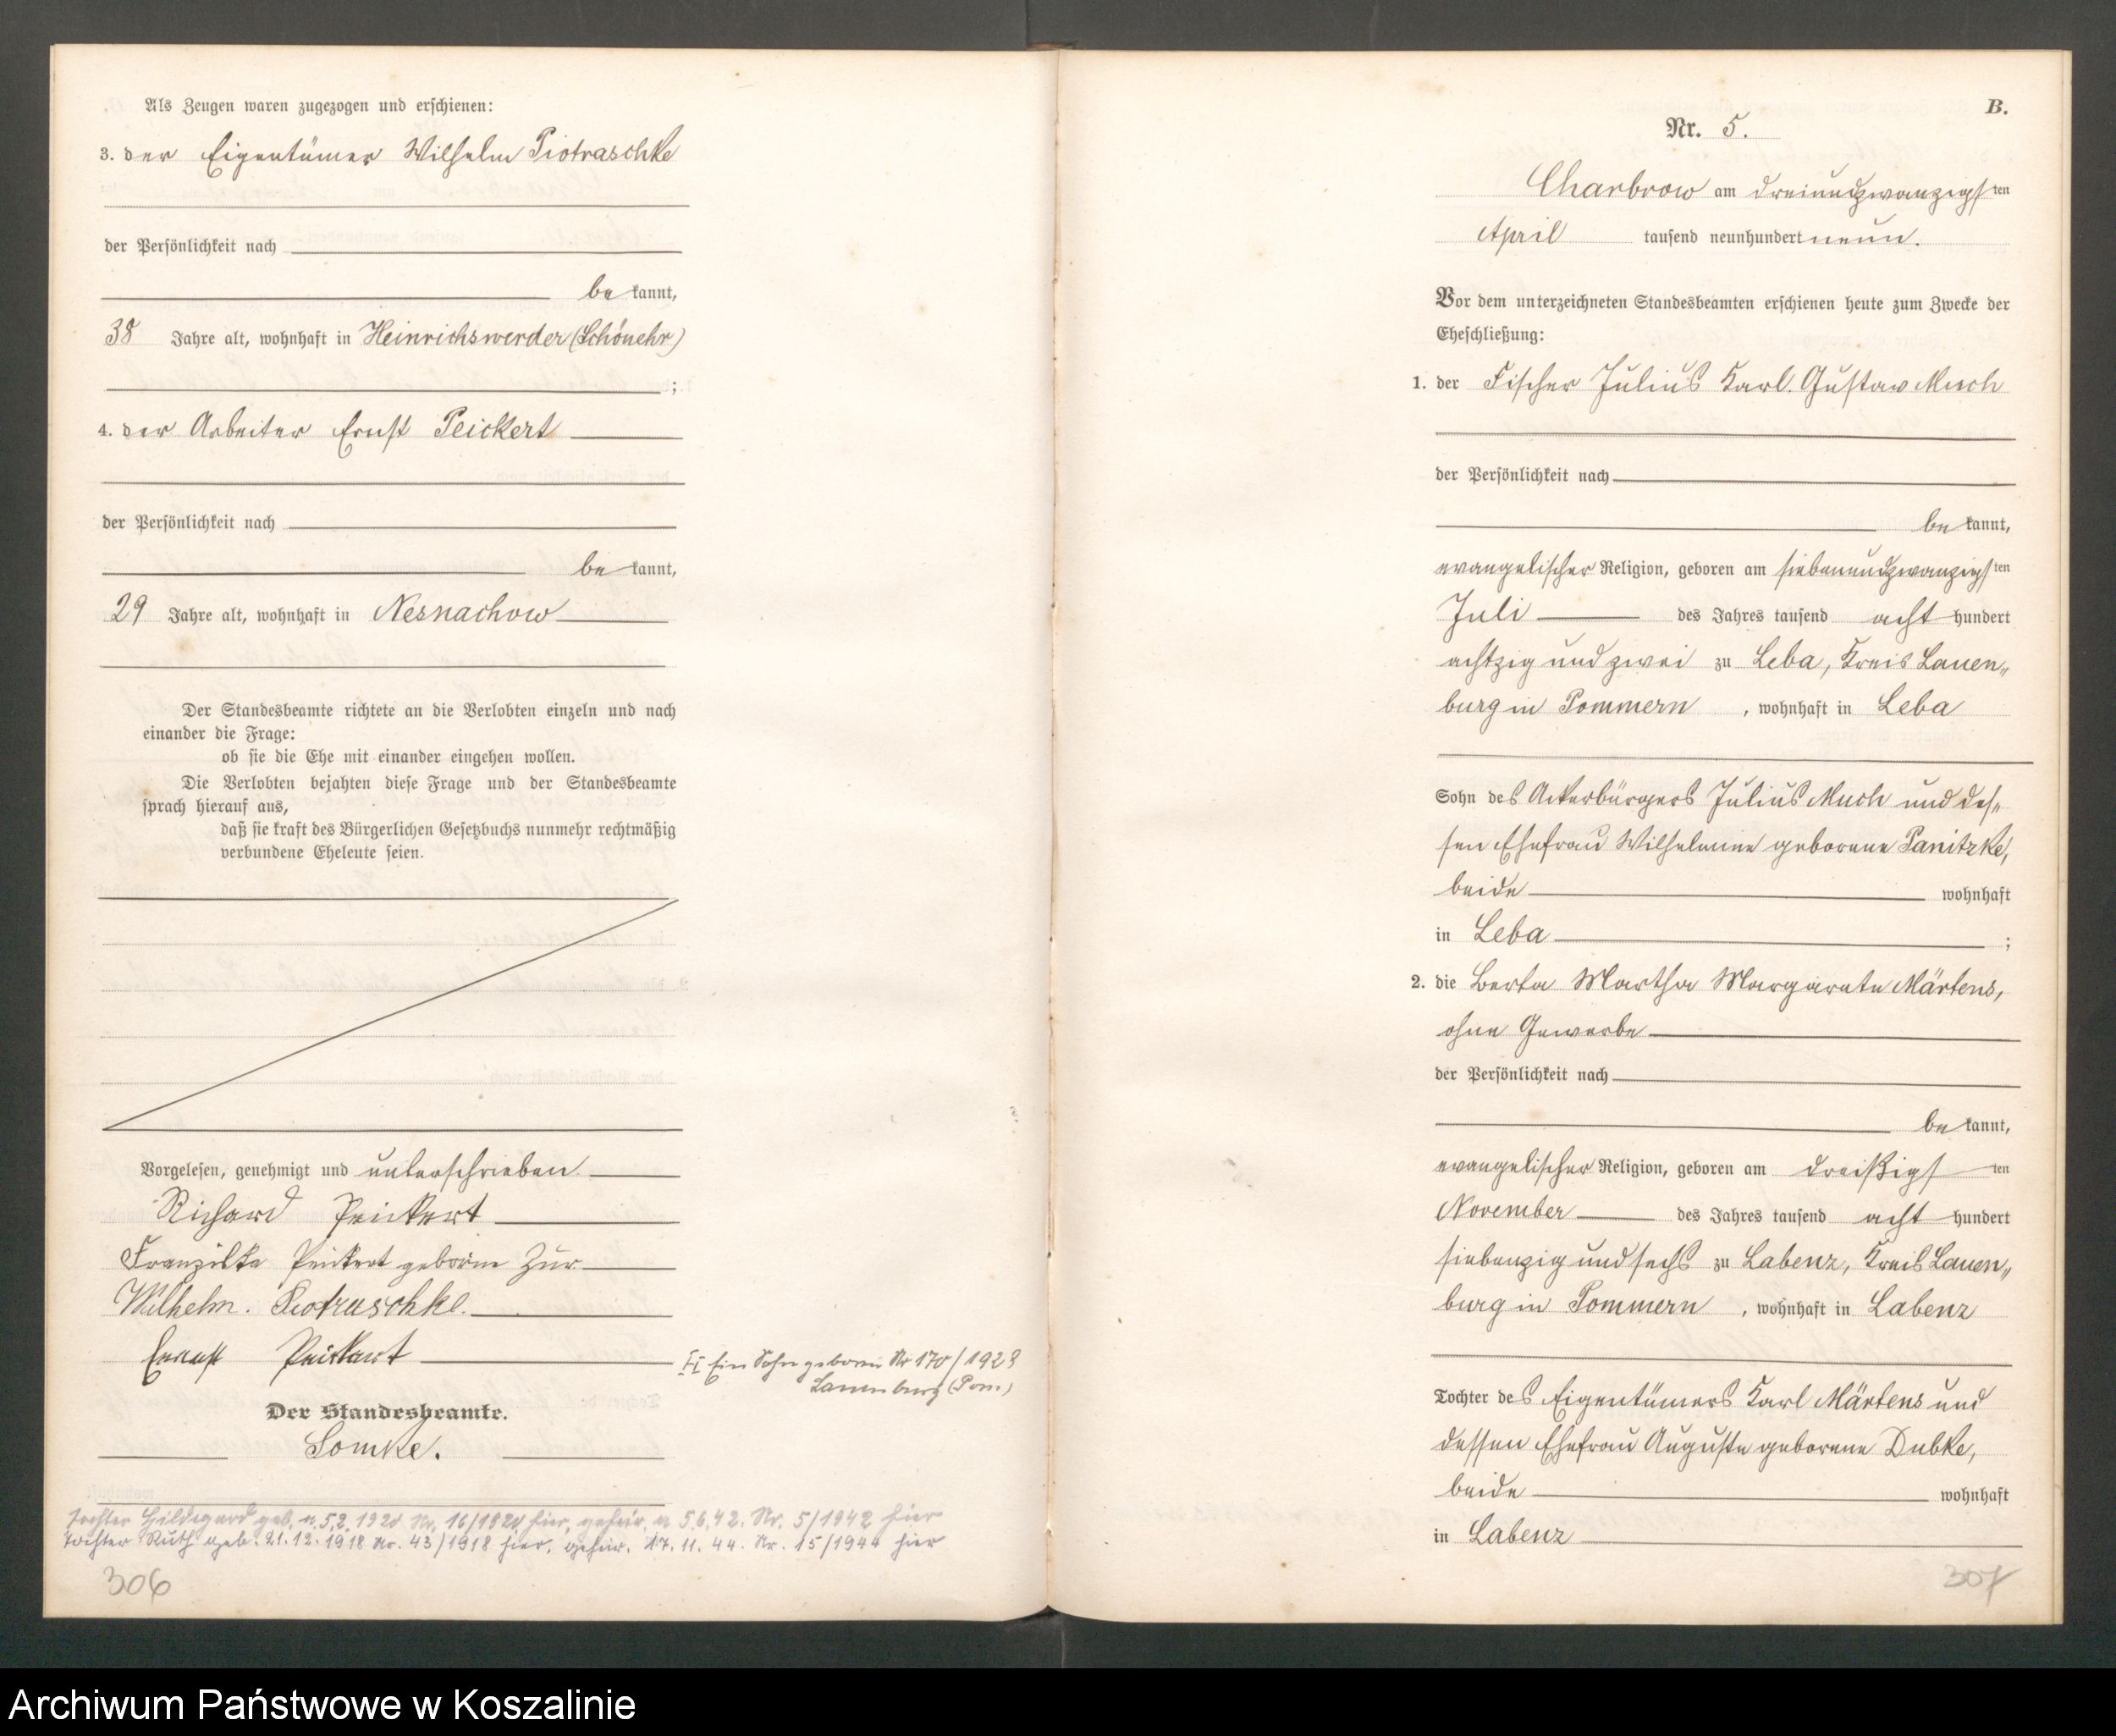 Als Zeugen waren zugezogen und erschienen:
3. der Eigentümer Wilhelm Piotraschke
der Persönlichkeit nach
be kannt,
38 Jahre alt, wohnhaft in Heinrichswerder (Schönehr)
;
4. der Arbeiter Ernst Peickert
der Persönlichkeit nach
be kannt,
29 Jahre alt, wohnhaft in Nesnachow
Der Standesbeamte richtete an die Verlobten einzeln und nach
einander die Frage:
ob sie die Ehe mit einander eingehen wollen.
Die Verlobten bejahten diese Frage und der Standesbeamte
sprach hierauf aus,
daß sie kraft des Bürgerlichen Gesetzbuchs nunmehr rechtmäßig
verbundene Eheleute seien.
Vorgelesen, genehmigt und unterschrieben.
Richard Peickert
Franziska Peickert geborene Zur
Wilhelm Piotraschke.
Ernst Peickert
II Ein Sohn geboren Nr 170/1928
Lauenburg (Pom.)
Der Standesbeamte.
Somke.
Tochter Hildegard geb. a. 5.2. 1920 Nr. 16/1920 hier, geheir. a 5.6.42. Nr. 5/1942 hier
Tochter Ruth geb. 21.12.1918 Nr. 43/1918 hier, geheir. 17.11.44. Nr. 15/1944 hier
306
B.
Nr. 5.
Charbrow am dreiundzwanzigsten
April tausend neunhundert neun.
Vor dem unterzeichneten Standesbeamten erschienen heute zum Zwecke der
Eheschließung:
1. der Fischer Julius Karl Gustav Much
der Persönlichkeit nach
be kannt,
evangelischer Religion, geboren am siebenundzwanzigsten
Juli des Jahres tausend acht hundert
achtzig und zwei zu Leba, Kreis Lauen„
burg in Pommern, wohnhaft in Leba
Sohn des Ackerbürgers Julius Much und des„
sen Ehefrau Wilhelmine geborene Panitzke,
beide wohnhaft
in Leba ;
2. die Berta Martha Margarete Märtens,
ohne Gewerbe
der Persönlichkeit nach
be kannt,
evangelischer Religion, geboren am dreißigsten
November des Jahres tausend acht hundert
siebenzig und sechs zu Labenz, Kreis Lauen„
burg in Pommern, wohnhaft in Labenz
Tochter des Eigentümers Karl Märtens und
dessen Ehefrau Auguste geborene Dubke,
beide wohnhaft
in Labenz
307
Archiwum Państwowe w Koszalinie